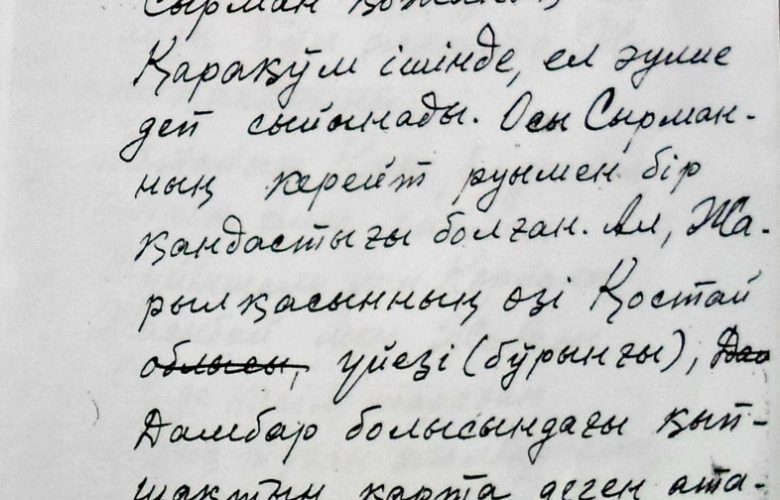 Сырман
Қарақұм ішінде, ел әулие
деп сыйынады. Осы Сырман-
ның керейт руымен бір
қандастығы болған. Ал, Жа-
рылқасынның өзі Қостай
облысы, үйезі (бұрынғы), Дам
Дамбар болысындағы қып-
шақтың қарта деген ата-